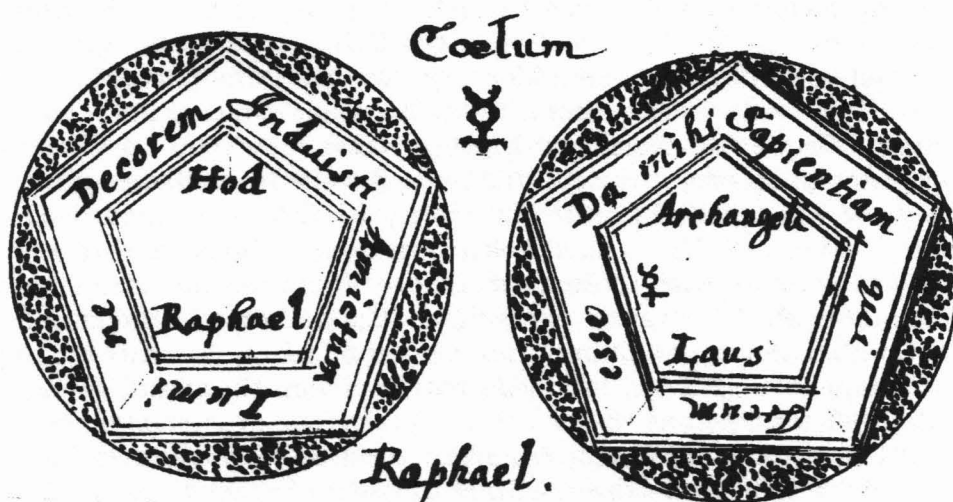 Cœlum
Decorem Induisti Amictum Lumi
Hod
Raphael
Da mihi Sapientiam qui
Archangeli
Laus
Raphael.